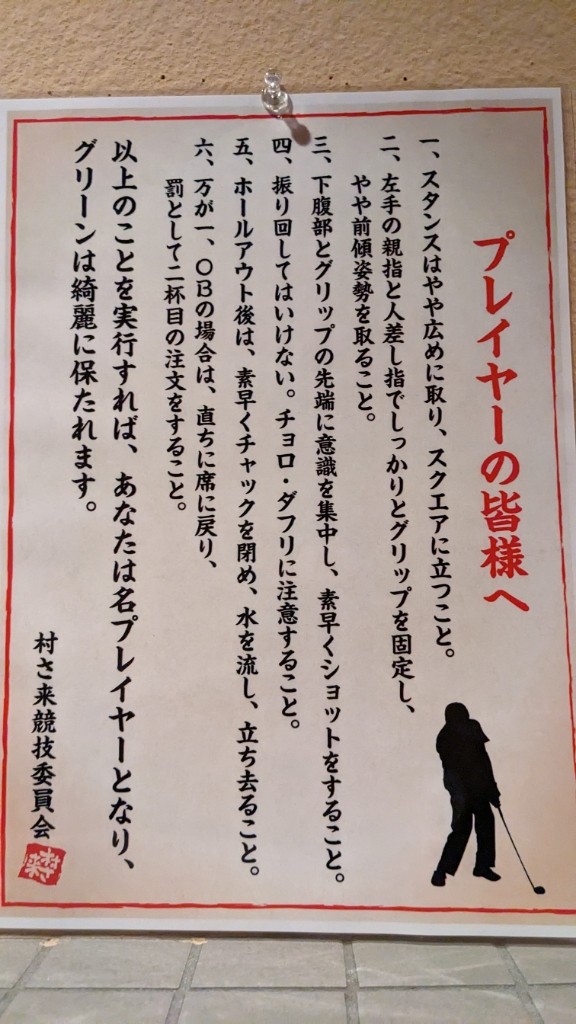 プレイヤーの皆様へ
一、スタンスはやや広めに取り、スクエアに立つこと。
二、左手の親指と人差し指でしっかりとグリップを固定し、
やや前傾姿勢を取ること。
三、下腹部とグリップの先端に意識を集中し、素早くショットをすること。
四、振り回してはいけない。チョロ・ダフリに注意すること。
五、ホールアウト後は、素早くチャックを閉め、水を流し、立ち去ること。
六、万が一、OBの場合は、直ちに席に戻り、
罰として二杯目の注文をすること。
以上のことを実行すれば、あなたは名プレイヤーとなり、
グリーンは綺麗に保たれます。
村さ来競技委員会
村さ来